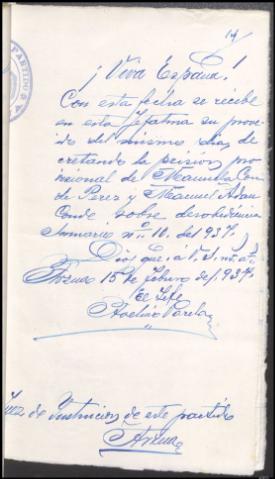 14
PARTIDO
¡Viva España!
Con esta fecha se recibe
en esta Jefatura su prove
ido del mismo dia, de
cretando la prision pro
visional de Manuela Con
de Perez y Manuel
Conde sobre desobediencia
Sumario nº 10. del 937.
Dios que á V. S. m. añ
Arzua 15 de febrero de 1,937.
El Jefe
Varela
Juez de Instruccion de este partido
Arzua